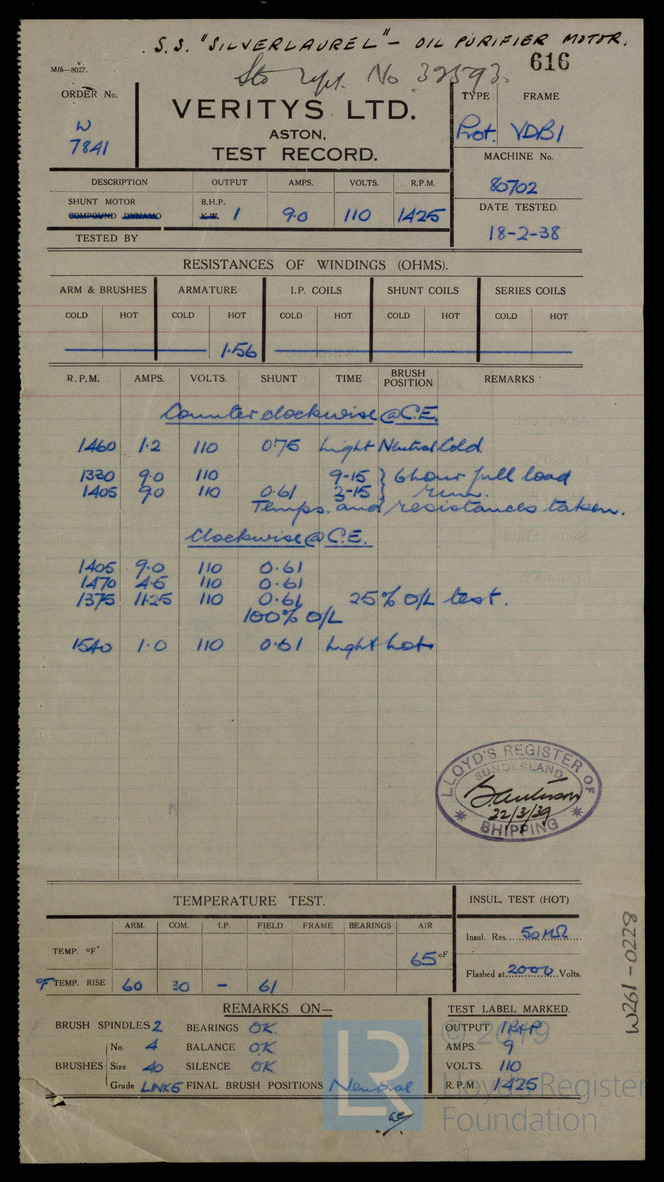 S.S. "SILVERLAUREL" - OIL PURIFIER MOTOR.
Sld rept. No 32593. 616
M/6-8027.
ORDER No. W 7841
VERITYS LTD.
ASTON,
TEST RECORD.
TYPE FRAME
Prot. VDB1
MACHINE No.
80702
DATE TESTED.
18-2-38
DESCRIPTION OUTPUT AMPS. VOLTS. R.P.M.
SHUNT MOTOR B.H.P.
COMPOUND DYNAMO K.W. 1 9.0 110 1425
TESTED BY
RESISTANCES OF WINDINGS (OHMS).
ARM & BRUSHES ARMATURE I.P. COILS SHUNT COILS SERIES COILS
COLD HOT COLD HOT COLD HOT COLD HOT COLD HOT
1.56
R.P.M. AMPS. VOLTS. SHUNT TIME BRUSH POSITION REMARKS
Counter clockwise @ C.E.
1460 1.2 110 0.75 Light Neutral Cold
1330 9.0 110 9-15 } 6 hour full load
1405 9.0 110 0.61 3-15 } run.
Temps. and resistances taken.
Clockwise @ C.E.
1405 9.0 110 0.61
1470 4.5 110 0.61
1375 11.25 110 0.61 25% O/L test.
100% O/L
1540 1.0 110 0.61 Light hot
LLOYD'S REGISTER OF SHIPPING
SUNDERLAND
22/3/39
TEMPERATURE TEST.
ARM. COM. I.P. FIELD FRAME BEARINGS AIR
TEMP. °F 65 °F
°F TEMP. RISE 60 30 - 61
INSUL. TEST (HOT)
Insul. Res. 50 MΩ
Flashed at 2000 Volts.
REMARKS ON—
BRUSH SPINDLES 2 BEARINGS OK
BRUSHES No 4 BALANCE OK
Size 40 SILENCE OK
Grade LINK5 FINAL BRUSH POSITIONS Neutral
TEST LABEL MARKED.
OUTPUT 1BHP
AMPS. 9
VOLTS. 110
R.P.M. 1425
W261-0228
LR
© 2019
Lloyd's Register
Foundation